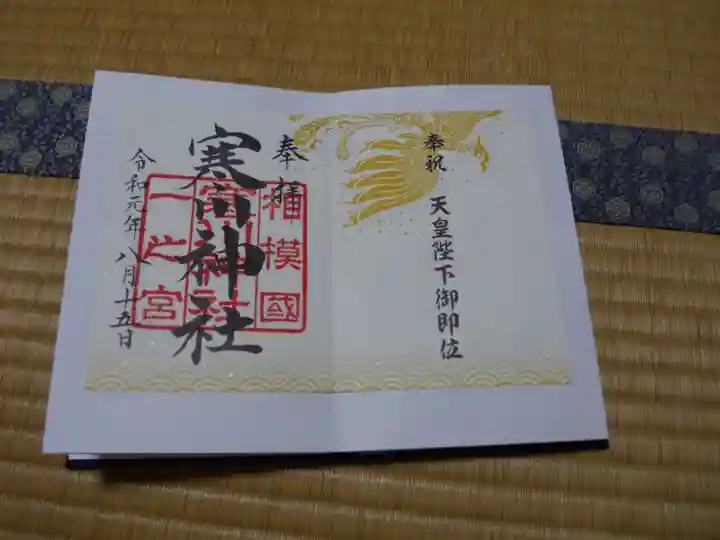 奉祝
天皇陛下御即位
奉拝
相模國
寒川神社
寒川神社
一之宮
令和元年八月十五日